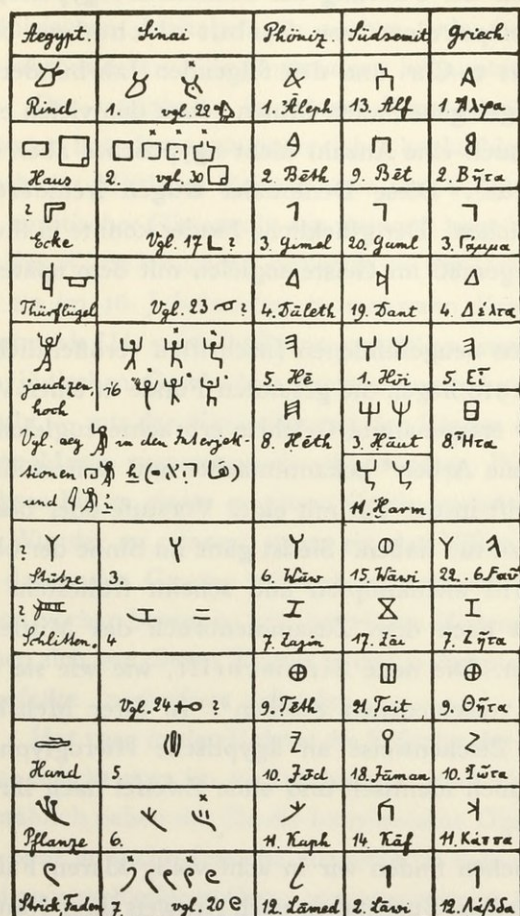 Aegypt. Sinai Phöniz. Südsemit Griech
Rind 1. vgl. 22 1. Āleph 13. Alf 1. Ἄλφα
Haus 2. vgl. 30 2. Bēth 9. Bēt 2. Βῆτα
Ecke Vgl. 17 ? 3. Gimel 20. Gaml 3. Γάμμα
Thürflügel Vgl. 23 ? 4. Dāleth 19. Dant 4. Δέλτα
jauchzen, 16 5. Hē 1. Hōi 5. Εἶ
hoch
Vgl. aeg in den Interjek- 8. Hēth 3. Haut 8. Ἦτα
tionen
und 11. Harm
? Stütze 3. 6. Wāw 15. Wāwi 22. 6 Ϝαῦ
? Schlitten. 4 7. Zajin 17. Zai 7. Ζῆτα
Vgl. 24 ? 9. Tēth 21. Tait 9. Θῆτα
Hand 10. Jōd 18. Jaman 10. Ἰῶτα
Pflanze 6. 11. Kaph 14. Kāf 11. Κάππα
Strick, Faden 7 vgl. 20 12. Lāmed 2. Lawi 12. Λάβδα